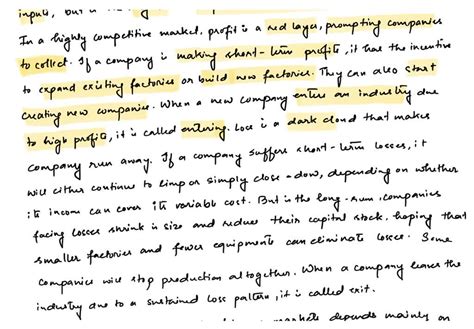 In a highly competitive market, profit is a red layer, prompting companies
to collect. If a company is making short-term profit, it has the incentive
to expand existing factories or build new factories. They can also start
creating new companies. When a new company enters an industry due
to high profits, it is called entering. Loss is a dark cloud that makes
company run away. If a company suffers short-term losses, it
will either continue to limp or simply close-down, depending on whether
its income can cover its variable cost. But in the long-run, companies
facing losses shrink in size and reduce their capital stock, hoping that
smaller factories and fewer equipments can eliminate losses. Some
companies will stop production altogether. When a company leaves the
industry due to a sustained loss pattern, it is called exit.
markets depends mainly on